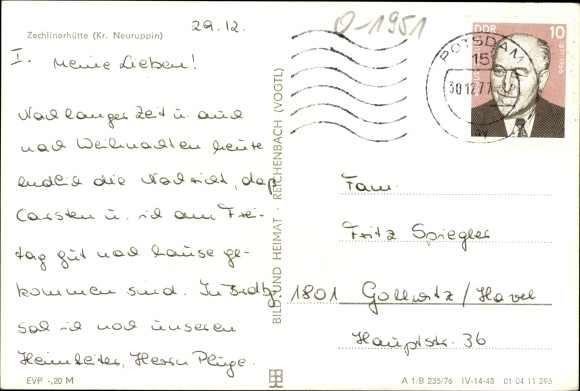 Zechlinerhütte (Kr. Neuruppin)
29.12.
0-1951
I. Meine Lieben!
Nach langer Zeit u. auch
nach Weihnachten heute
endlich die Nachricht, daß
Carsten u. ich am Frei-
tag gut nach hause ge-
kommen sind. In Brdbg.
sah ich noch unseren
Heimleiter, Herrn Plüge.
EVP -,20 M
BILD UND HEIMAT · REICHENBACH (VOGTL)
DDR 10
POTSDAM
15
30.12.77
Fam.
Fritz Spiegler
1801 Gollwitz/Havel
Hauptstr. 36
A 1/B 235/76 IV-14-48 01 04 11 296